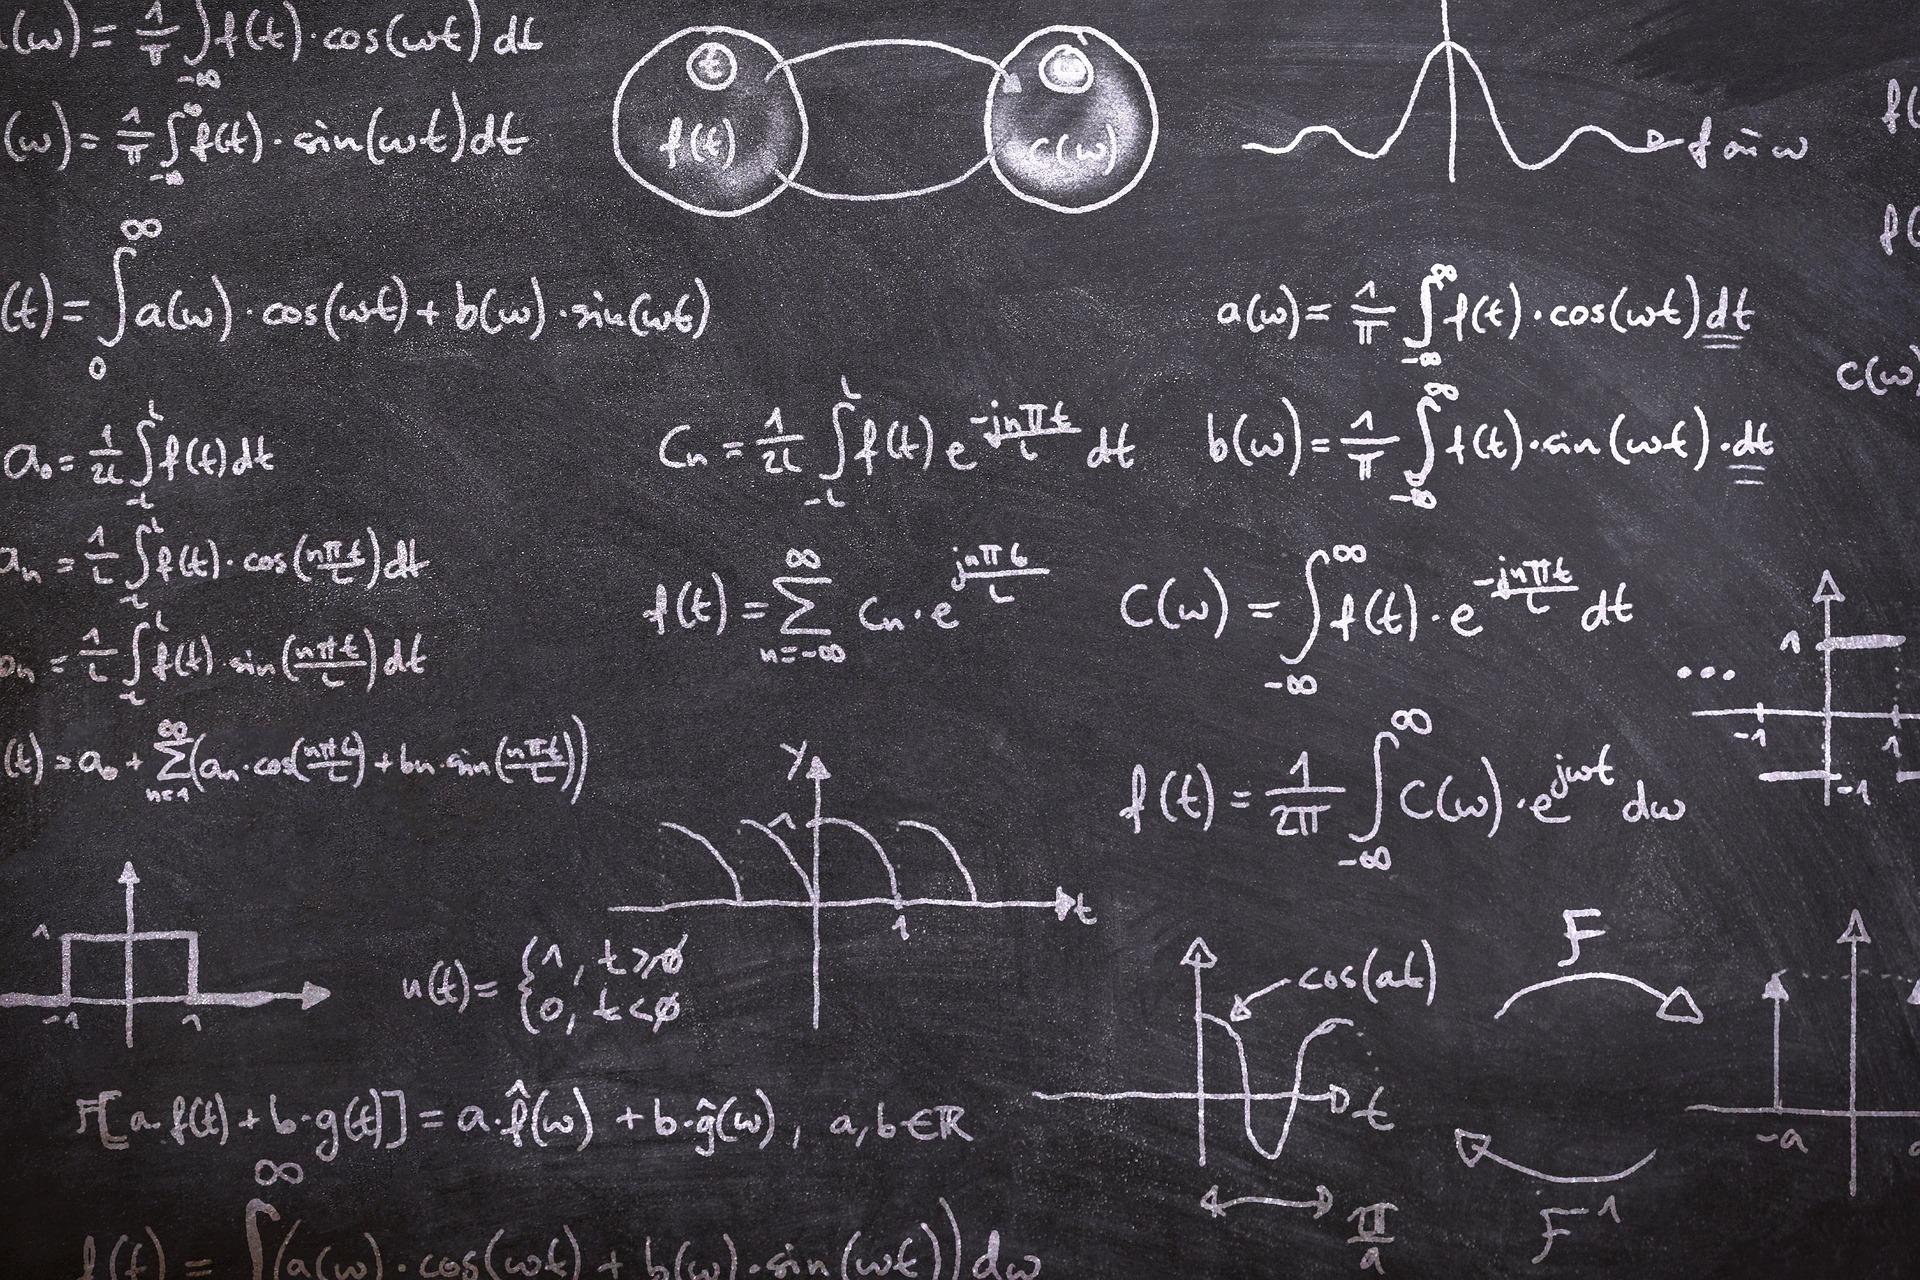 (ω) = 1/π ∫_{-∞} f(t)·cos(ωt) dt
(ω) = 1/π ∫_{-∞}^{∞} f(t)·sin(ωt) dt
t
f(t)
ω
c(ω)
f ω
(t) = ∫_0^∞ a(ω)·cos(ωt) + b(ω)·sin(ωt)
a(ω) = 1/π ∫_{-∞}^{∞} f(t)·cos(ωt) dt
c(ω)
a₀ = 1/2L ∫_{-L}^{L} f(t) dt
Cn = 1/2L ∫_{-L}^{L} f(t) e^{-jnπt/L} dt
b(ω) = 1/π ∫_{-∞}^{∞} f(t)·sin(ωt)·dt
an = 1/L ∫_{-L}^{L} f(t)·cos(nπt/L) dt
f(t) = ∑_{n=-∞}^{∞} Cn·e^{jnπt/L}
C(ω) = ∫_{-∞}^{∞} f(t)·e^{-jnπt/L} dt
bn = 1/L ∫_{-L}^{L} f(t)·sin(nπt/L) dt
1
...
-1 1
-1
(t) = a₀ + ∑_{n=1}^{∞} (an·cos(nπt/L) + bn·sin(nπt/L))
f(t) = 1/2π ∫_{-∞}^{∞} C(ω)·e^{jωt} dω
y
1
1
t
1
-1 1
u(t) = {1, t≥0
{0, t<0
cos(at)
t
π/a
F
F⁻¹
-a
F[a·f(t) + b·g(t)] = a·f̂(ω) + b·ĝ(ω), a,b∈ℝ
f(t) = ∫^∞ (a(ω)·cos(ωt) + b(ω)·sin(ωt)) dω